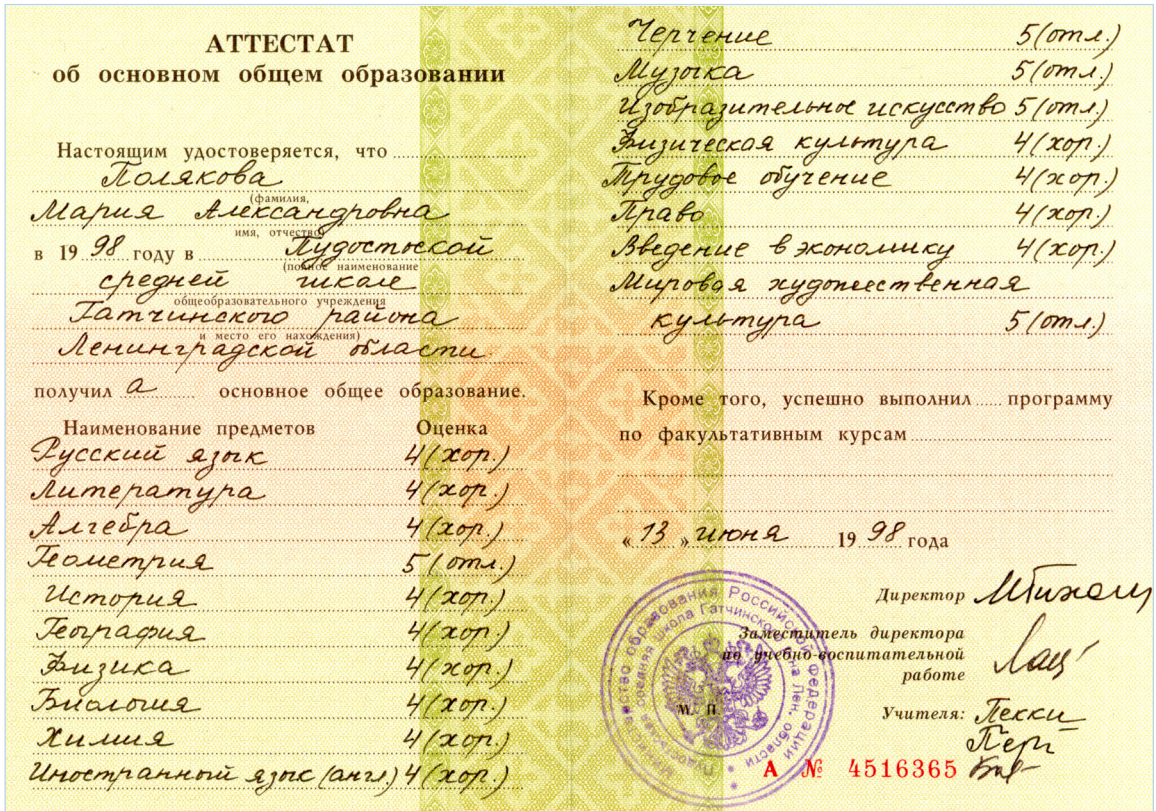 АТТЕСТАТ
об основном общем образовании
Настоящим удостоверяется, что
Полякова
(фамилия,
Мария Александровна
имя, отчество)
в 1998 году в Пудостьской
(полное наименование
средней школе
общеобразовательного учреждения
Гатчинского района
и место его нахождения)
Ленинградской области
получила основное общее образование.
Наименование предметов Оценка
Русский язык 4(хор.)
Литература 4(хор.)
Алгебра 4(хор.)
Геометрия 5(отл.)
История 4(хор.)
География 4(хор.)
Физика 4(хор.)
Биология 4(хор.)
Химия 4(хор.)
Иностранный язык (англ.) 4(хор.)
Черчение 5(отл.)
Музыка 5(отл.)
Изобразительное искусство 5(отл.)
Физическая культура 4(хор.)
Трудовое обучение 4(хор.)
Право 4(хор.)
Введение в экономику 4(хор.)
Мировая художественная
культура 5(отл.)
Кроме того, успешно выполнил программу
по факультативным курсам
«13» июня 1998 года
Директор
Заместитель директора
по учебно-воспитательной
работе
М. П.
Учителя:
А № 4516365
Министерство образования Российской Федерации
Пудостьская средняя школа Гатчинского р-на Лен. области